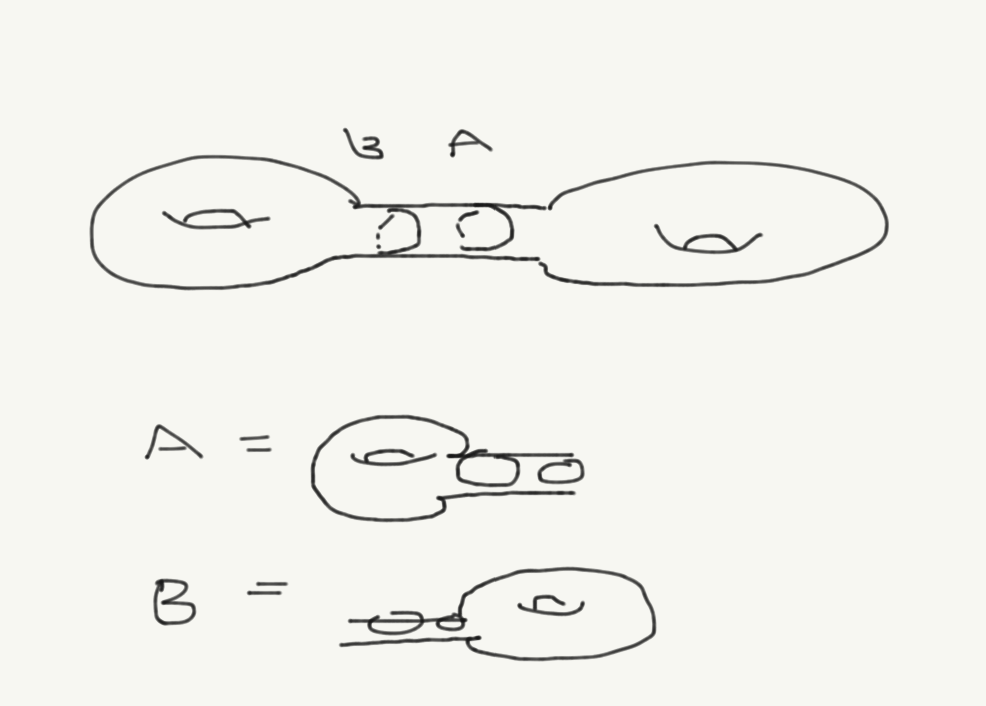 B A
A =
B =